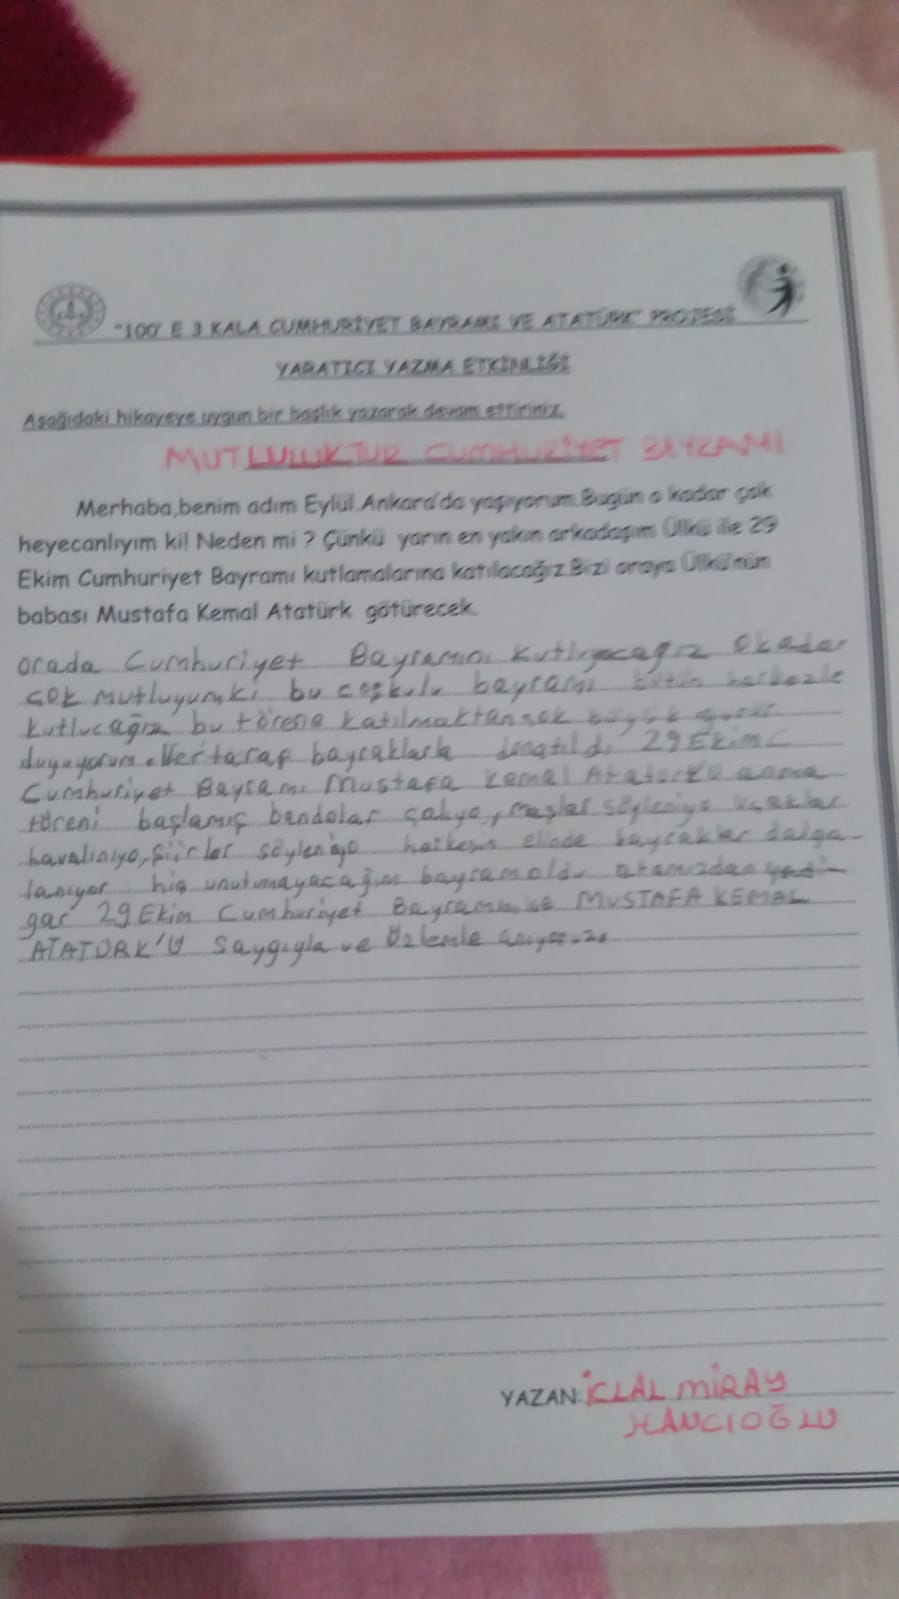 "100' E 3 KALA CUMHURİYET BAYRAMI VE ATATÜRK" PROJESİ
YARATICI YAZMA ETKİNLİĞİ
Aşağıdaki hikayeye uygun bir başlık yazarak devam ettiriniz.
MUTLULUKTUR CUMHURİYET BAYRAMI
Merhaba,benim adım Eylül.Ankara'da yaşıyorum.Bugün o kadar çok
heyecanlıyım ki! Neden mi ? Çünkü yarın en yakın arkadaşım Ülkü ile 29
Ekim Cumhuriyet Bayramı kutlamalarına katılacağız.Bizi oraya Ülkü'nün
babası Mustafa Kemal Atatürk götürecek.
orada Cumhuriyet Bayramını kutluyacağız Okadar
çok mutluyumki bu coşkulu bayramı bütün herkezle
kutlucağız bu törene katılmaktan büyük gurur
duyuyorum. Her taraf bayraklarla donatıldı 29 Ekim
Cumhuriyet Bayramı Mustafa Kemal Atatürkü anma
töreni başlamış bandolar çalıyo, marşlar söyleniyo uçaklar
havalınıyo, şiirler söyleniyo herkesin elinde bayraklar dalga
lanıyor hiç unutumayacağım bayram oldu atamızdan yadi-
gar 29 Ekim Cumhuriyet Bayramını ve MUSTAFA KEMAL
ATATÜRK'Ü saygıyla ve özlemle anıyoruz.
YAZAN: İCLAL MİRAY
HANCIOĞLU